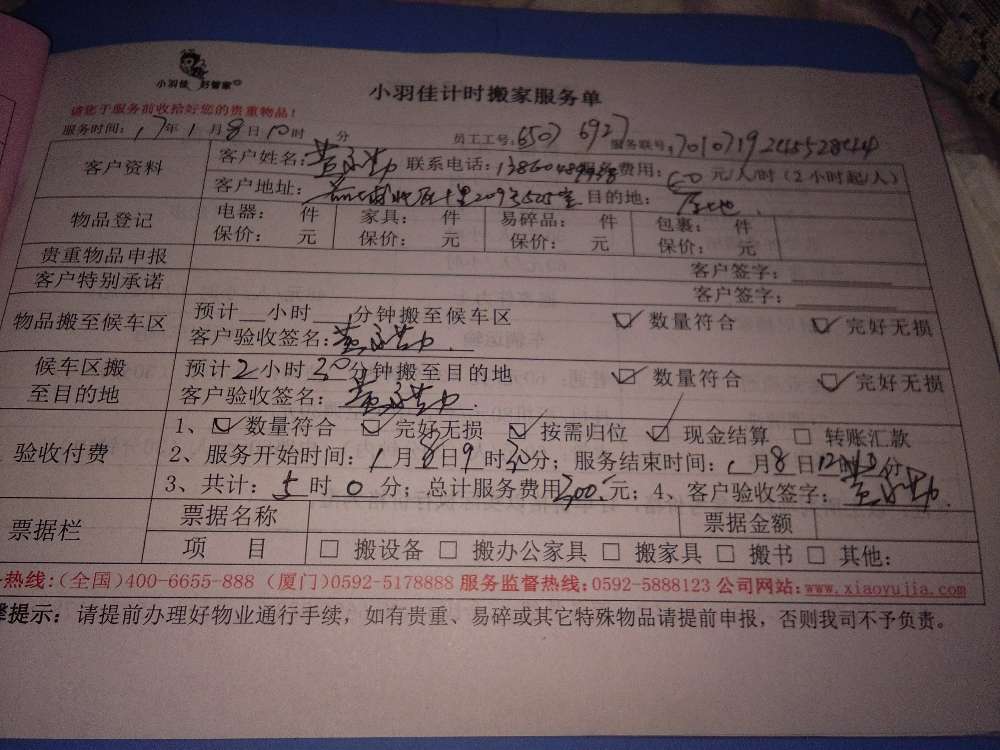 小羽佳 好管家
小羽佳计时搬家服务单
请您于服务前收拾好您的贵重物品！
服务时间：17年1月8日10时 分 员工工号：6507 6927 服务联号：
客户资料 客户姓名：黄 联系电话： 服务费用：60元/人/时（2小时起/人）
客户地址： 209号525室 目的地：
物品登记 电器： 件 家具： 件 易碎品： 件 包裹： 件
保价： 元 保价： 元 保价： 元 保价： 元
贵重物品申报 客户签字：
客户特别承诺 客户签字：
物品搬至候车区 预计__小时___分钟搬至候车区 ☑ 数量符合 ☑ 完好无损
客户验收签名：黄
候车区搬至目的地 预计2小时30分钟搬至目的地 ☑ 数量符合 ☑ 完好无损
客户验收签名：黄
验收付费 1、☑ 数量符合 ☑ 完好无损 ☑ 按需归位 ☑ 现金结算 □ 转账汇款
2、服务开始时间：1月8日9时30分；服务结束时间：1月8日12时 分
3、共计：5时0分；总计服务费用300元；4、客户验收签字：黄
票据栏 票据名称 票据金额
项 目 □ 搬设备 □ 搬办公家具 □ 搬家具 □ 搬书 □ 其他：
热线：(全国)400-6655-888 (厦门)0592-5178888 服务监督热线：0592-5888123 公司网站：www.xiaoyujia.com
提示：请提前办理好物业通行手续，如有贵重、易碎或其它特殊物品请提前申报，否则我司不予负责。